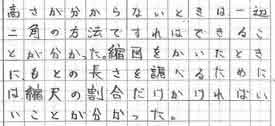 高さが分からないときは一辺
二角の方法ですればできるこ
とが分かった。縮図をかいたとき
にもとの長さを調べるために
は縮尺の割合だけかければい
いことが分かった。